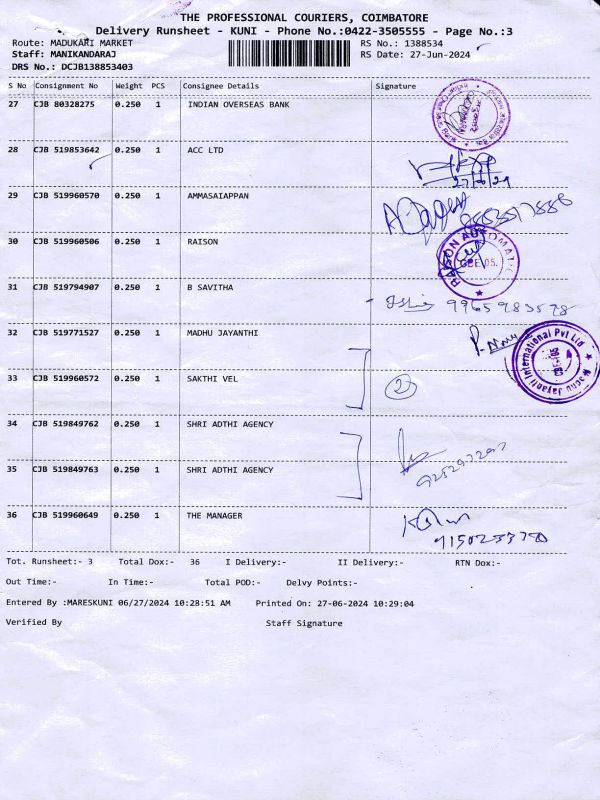 THE PROFESSIONAL COURIERS, COIMBATORE
Delivery Runsheet - KUNI - Phone No.:0422-3505555 - Page No.:3
Route: MADUKARI MARKET RS No.: 1388534
Staff: MANIKANDARAJ RS Date: 27-Jun-2024
DRS No.: DCJB138853403
S No Consignment No Weight PCS Consignee Details Signature
27 CJB 80328275 0.250 1 INDIAN OVERSEAS BANK
28 CJB 519853642 0.250 1 ACC LTD
27/6/24
29 CJB 519960570 0.250 1 AMMASAIAPPAN
30 CJB 519960506 0.250 1 RAISON
RAISON AUTOMATIC
CBE.05.
31 CJB 519794907 0.250 1 B SAVITHA
9965983578
32 CJB 519771527 0.250 1 MADHU JAYANTHI
Madhu Jayanti International Pvt Ltd
33 CJB 519960572 0.250 1 SAKTHI VEL
2
34 CJB 519849762 0.250 1 SHRI ADTHI AGENCY
35 CJB 519849763 0.250 1 SHRI ADTHI AGENCY
36 CJB 519960649 0.250 1 THE MANAGER
Tot. Runsheet:- 3 Total Dox:- 36 I Delivery:- II Delivery:- RTN Dox:-
Out Time:- In Time:- Total POD:- Delvy Points:-
Entered By :MARESKUNI 06/27/2024 10:28:51 AM Printed On: 27-06-2024 10:29:04
Verified By Staff Signature